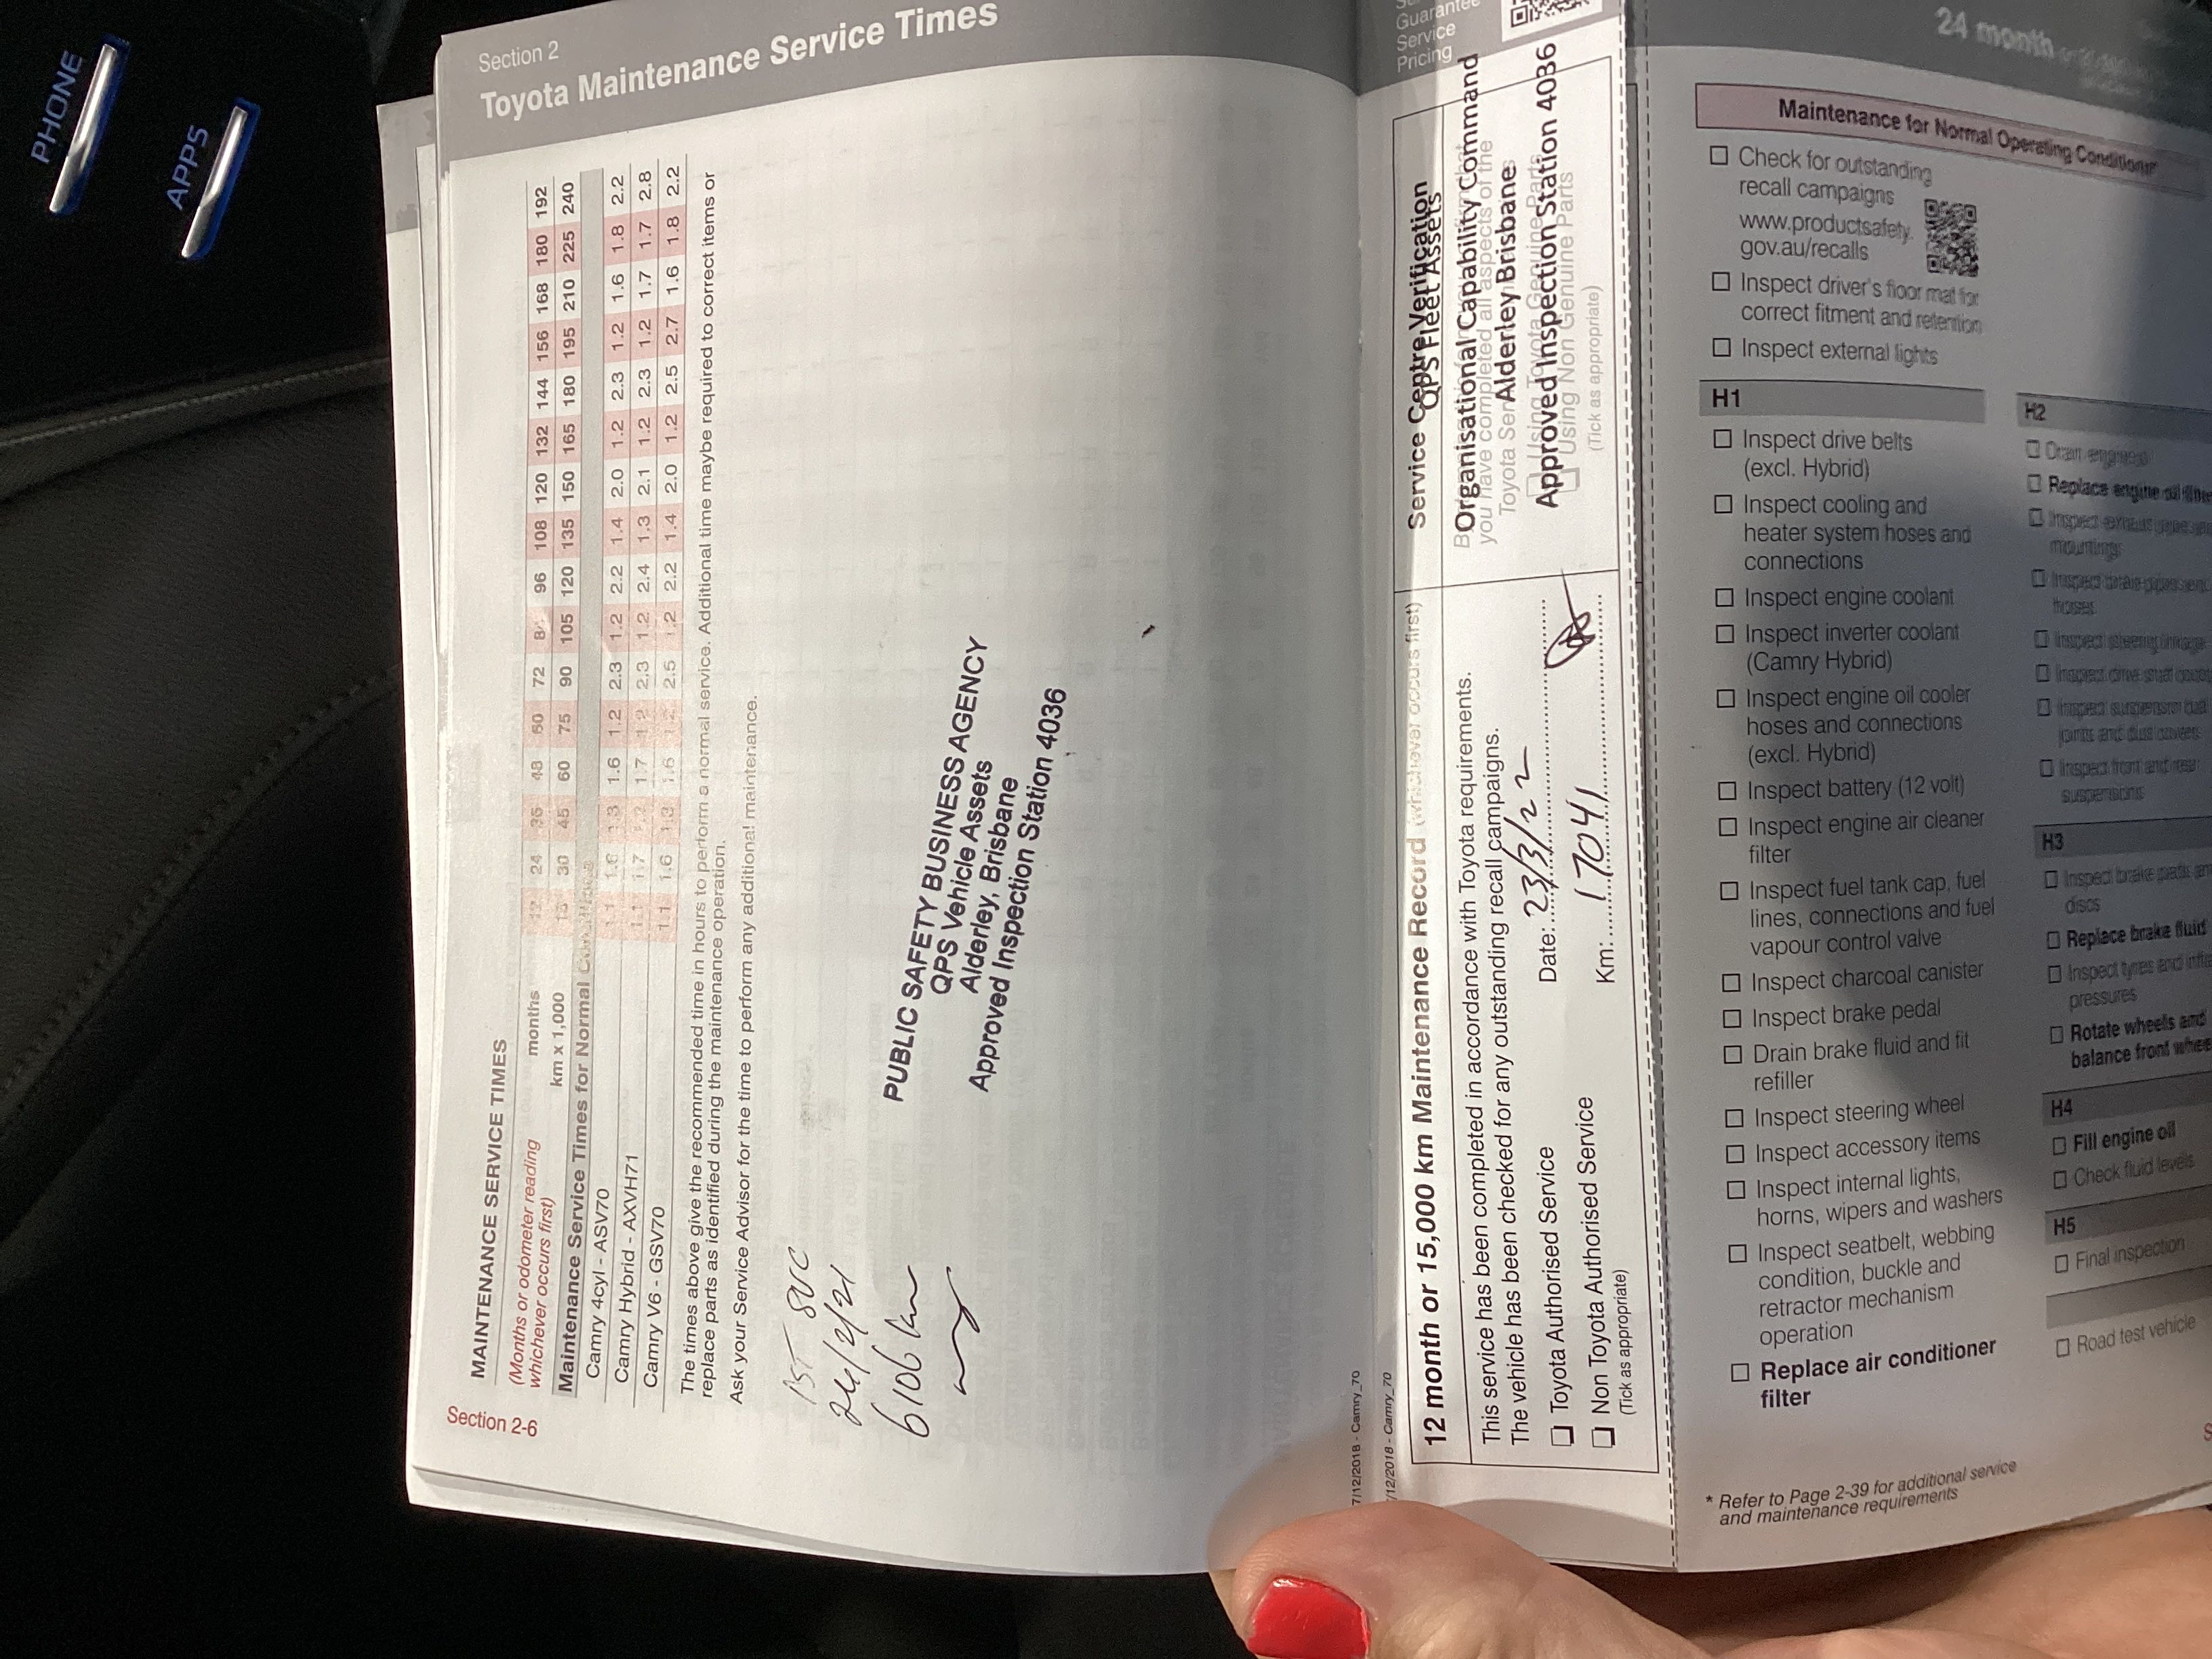 PHONE
APPS
Section 2
Toyota Maintenance Service Times
MAINTENANCE SERVICE TIMES
(Months or odometer reading
whichever occurs first)
months 12 24 36 48 60 72 84 96 108 120 132 144 156 168 180 192
km x 1,000 15 30 45 60 75 90 105 120 135 150 165 180 195 210 225 240
Maintenance Service Times for Normal Conditions
Camry 4cyl - ASV70 1.1 1.6 1.3 1.6 1.2 2.3 1.2 2.2 1.4 2.0 1.2 2.3 1.2 1.6 1.8 2.2
Camry Hybrid - AXVH71 1.1 1.7 1.2 1.7 1.2 2.3 1.2 2.4 1.3 2.1 1.2 2.3 1.2 1.7 1.7 2.8
Camry V6 - GSV70 1.1 1.6 1.3 1.6 1.2 2.5 1.2 2.2 1.4 2.0 1.2 2.5 2.7 1.6 1.8 2.2
The times above give the recommended time in hours to perform a normal service. Additional time maybe required to correct items or
replace parts as identified during the maintenance operation.
Ask your Service Advisor for the time to perform any additional maintenance.
1ST SVC
24/2/21
6106 km
PUBLIC SAFETY BUSINESS AGENCY
QPS Vehicle Assets
Alderley, Brisbane
Approved Inspection Station 4036
Section 2-6
7/12/2018 - Camry_70
/12/2018 - Camry_70
Guarantee
Service
Pricing
12 month or 15,000 km Maintenance Record (whichever occurs first)
This service has been completed in accordance with Toyota requirements.
The vehicle has been checked for any outstanding recall campaigns.
Toyota Authorised Service
Non Toyota Authorised Service
(Tick as appropriate)
Date: 23/3/22
Km: 17041
Service Centre Verification
QPS Fleet Assets
Organisational Capability Command
you have completed all aspects of the
Toyota Ser
Alderley Brisbane
Approved Inspection Station 4036
Using Toyota Genuine Parts
Using Non Genuine Parts
(Tick as appropriate)
24 month
Maintenance for Normal Operating Conditions*
Check for outstanding
recall campaigns
www.productsafety.
gov.au/recalls
Inspect driver's floor mat for
correct fitment and retention
Inspect external lights
H1
Inspect drive belts
(excl. Hybrid)
Inspect cooling and
heater system hoses and
connections
Inspect engine coolant
Inspect inverter coolant
(Camry Hybrid)
Inspect engine oil cooler
hoses and connections
(excl. Hybrid)
Inspect battery (12 volt)
Inspect engine air cleaner
filter
Inspect fuel tank cap, fuel
lines, connections and fuel
vapour control valve
Inspect charcoal canister
Inspect brake pedal
Drain brake fluid and fit
refiller
Inspect steering wheel
Inspect accessory items
Inspect internal lights,
horns, wipers and washers
Inspect seatbelt, webbing
condition, buckle and
retractor mechanism
operation
Replace air conditioner
filter
* Refer to Page 2-39 for additional service
and maintenance requirements
H2
Drain engine
Replace engine oil filte
Inspect exhaust pipe
mountings
Inspect brake pipes and
hoses
Inspect steering linkage
Inspect drive shaft
Inspect suspension ball
joints and dust covers
Inspect front and rear
suspensions
H3
Inspect brake pads an
discs
Replace brake fluid
Inspect tyres and infla
pressures
Rotate wheels and
balance front whee
H4
Fill engine oil
Check fluid levels
H5
Final inspection
Road test vehicle